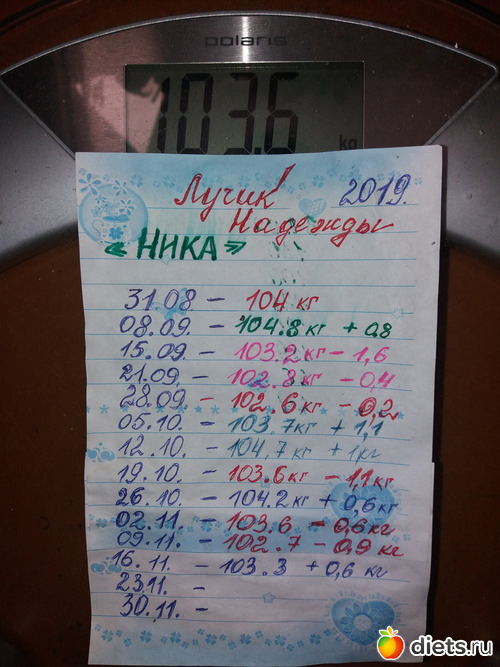 polaris
103.6
kg
Лучик 2019.
Надежды
«НИКА»
31.08 - 104 кг
08.09. - 104.8 кг + 0,8
15.09. - 103.2 кг - 1,6
21.09. - 102.8 кг - 0,4
28.09 - 102.6 кг - 0,2
05.10. - 103.7 кг + 1,1
12.10. - 104,7 кг + 1 кг
19.10. - 103.6 кг - 1,1 кг
26.10. - 104.2 кг + 0,6 кг
02.11. - 103.6 - 0,6 кг
09.11. - 102.7 - 0,9 кг
16.11. - 103.3 + 0,6 кг
23.11. -
30.11. -
diets.ru